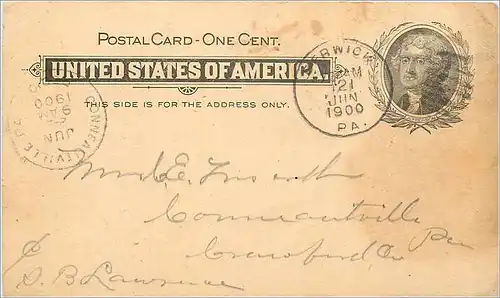 POSTAL CARD - ONE CENT.
UNITED STATES OF AMERICA.
THIS SIDE IS FOR THE ADDRESS ONLY.
RWICK
AM
21
JUN
1900
PA.
CONNEAUTVILLE PA
JUN
9 AM
1900
E.
Conneautville
Crawford Co Pa
S. B Lawrence